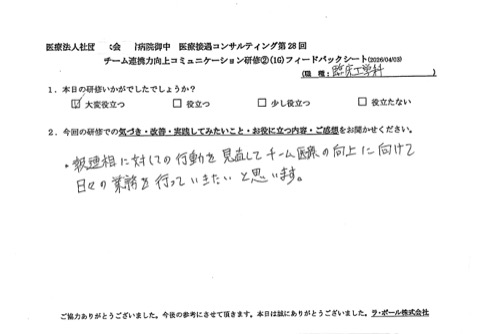 医療法人社団 会 病院御中 医療接遇コンサルティング第28回
チーム連携力向上コミュニケーション研修②(1G)フィードバックシート(2026/04/03)
(職種:臨床工学科)
1.本日の研修いかがでしたでしょうか?
☑大変役立つ □役立つ □少し役立つ □役立たない
2.今回の研修での気づき・改善・実践してみたいこと・お役に立つ内容・ご感想をお聞かせください。
・報連相に対しての行動を見直してチーム医療の向上に向けて
日々の業務を行っていきたいと思います。
ご協力ありがとうございました。今後の参考にさせて頂きます。本日は誠にありがとうございました。ラ・ポール株式会社